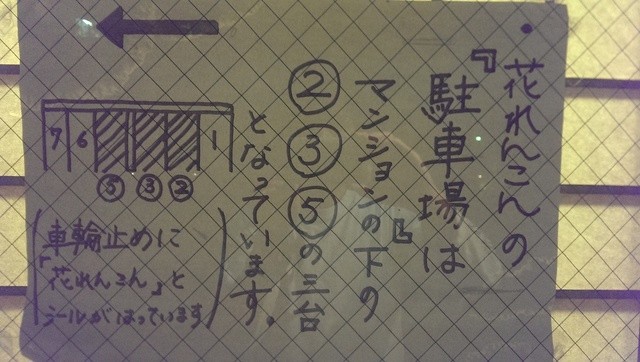 花れんこんの
『駐車場は』
マンションの下の
②③⑤の三台
となっています。
7 6 1
⑤ ③ ②
(車輪止めに
「花れんこん」と
シールがはっています)